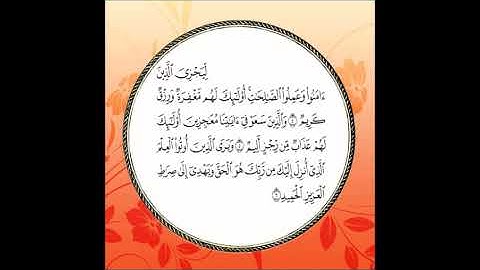 لِّيَجْزِىَ ٱلَّذِينَ
ءَامَنُوا۟ وَعَمِلُوا۟ ٱلصَّـٰلِحَـٰتِ ۚ أُو۟لَـٰٓئِكَ لَهُم مَّغْفِرَةٌ وَرِزْقٌ
كَرِيمٌ ۝ وَٱلَّذِينَ سَعَوْ فِىٓ ءَايَـٰتِنَا مُعَـٰجِزِينَ أُو۟لَـٰٓئِكَ
لَهُمْ عَذَابٌ مِّن رِّجْزٍ أَلِيمٌ ۝ وَيَرَى ٱلَّذِينَ أُوتُوا۟ ٱلْعِلْمَ
ٱلَّذِىٓ أُنزِلَ إِلَيْكَ مِن رَّبِّكَ هُوَ ٱلْحَقَّ وَيَهْدِىٓ إِلَىٰ صِرَٰطِ
ٱلْعَزِيزِ ٱلْحَمِيدِ ۝